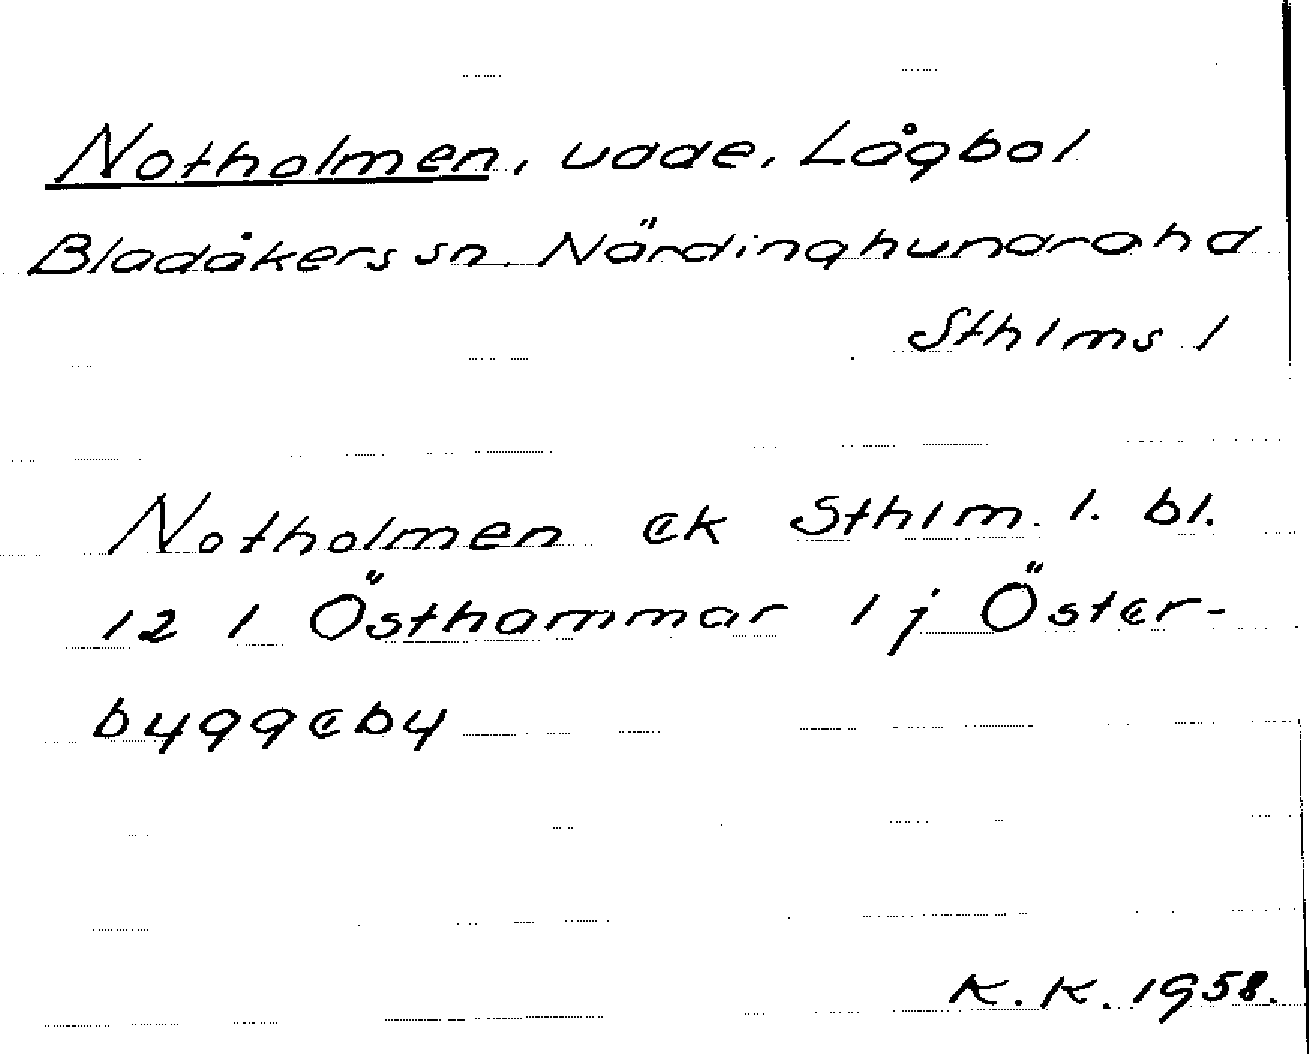 Notholmen, udde, Lågbol
Bladåkers sn. Närdinghundra hd
Sthlms l
Notholmen ek Sthlm. l. bl.
12 l Östhammar l j Öster-
byggeby
K.K. 1958.